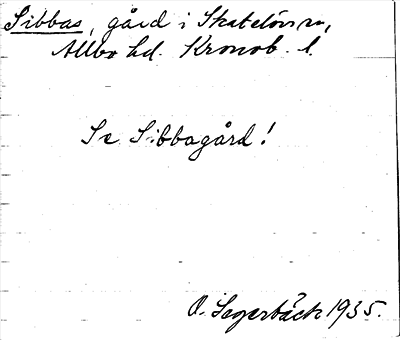 Sibbas, gård i Skatelövs sn,
Allbo hd. Kronob. l.
Se Sibbagård!
O. Segerbäck 1935.